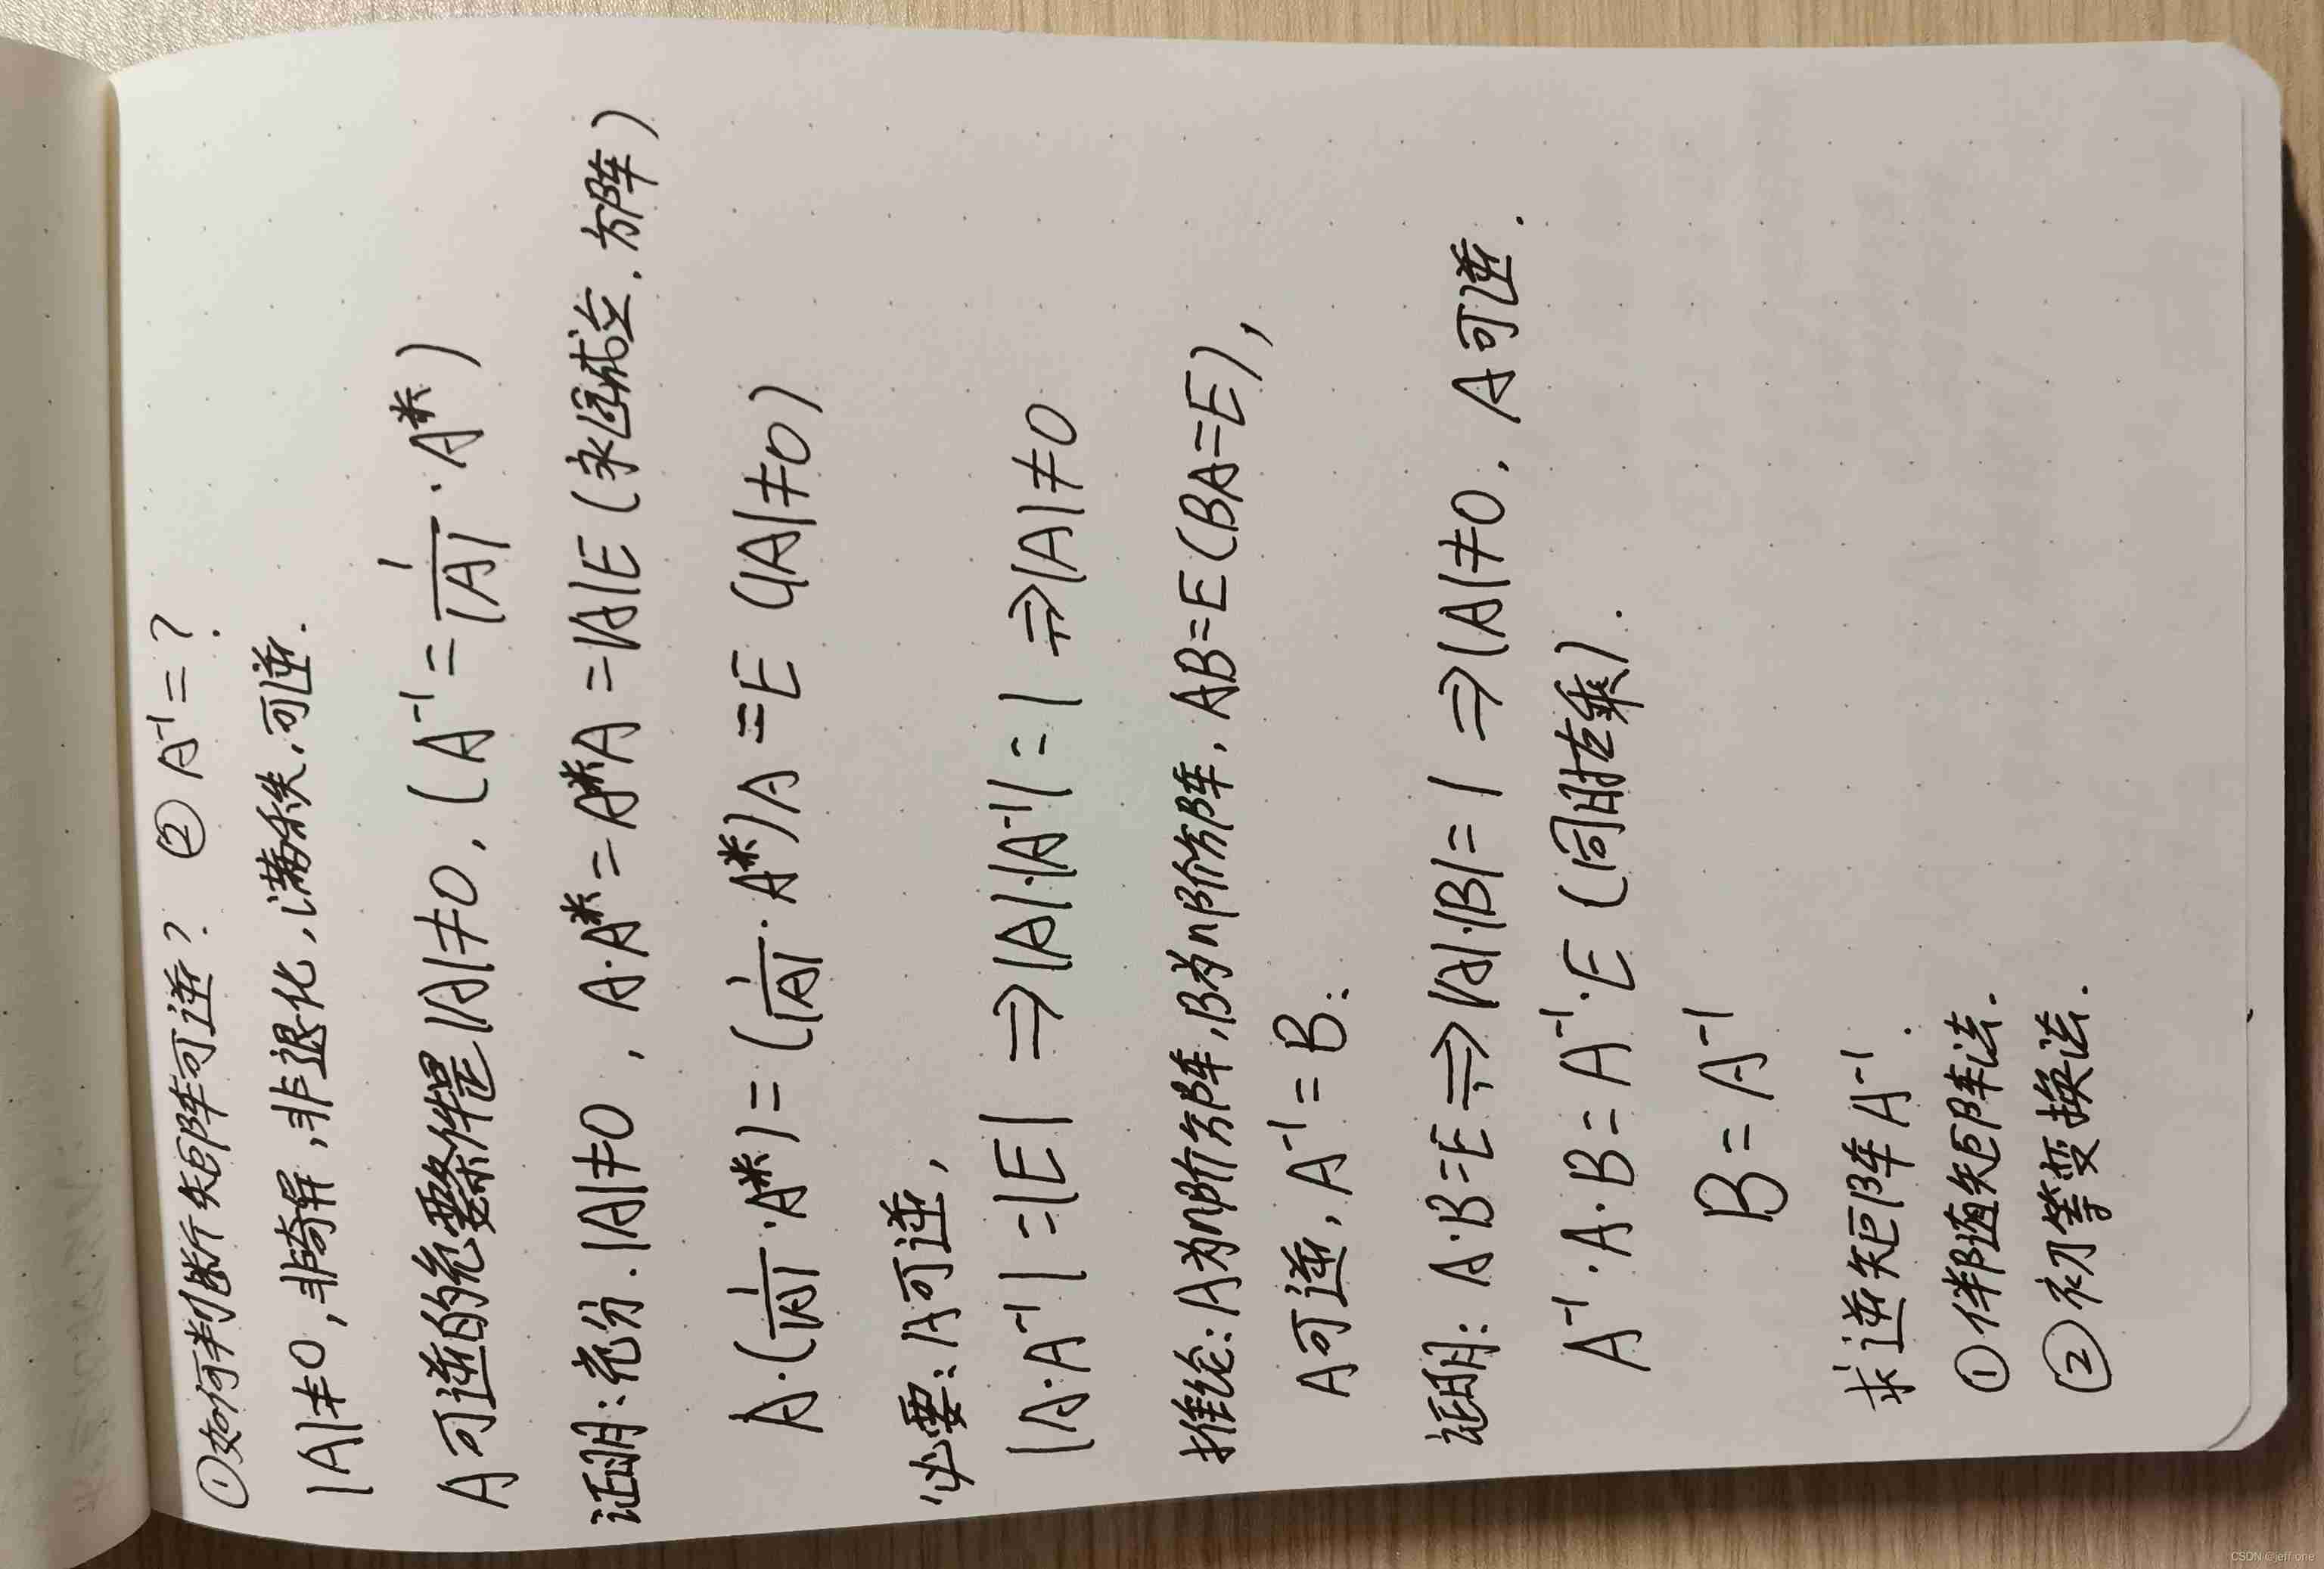 ①如何判断矩阵可逆? ② A⁻¹=?
|A|≠0,非奇异,非退化,满秩,可逆.
A可逆的充要条件是|A|≠0, (A⁻¹=1/|A|·A*)
证明:充分.|A|≠0, A·A*=A*A=|A|E(永远成立.方阵)
A·(1/|A|·A*)=(1/|A|·A*)A=E (|A|≠0)
必要:A可逆,
|A·A⁻¹|=|E| ⇒|A|·|A⁻¹|=1 ⇒|A|≠0
推论:A为n阶方阵,B为n阶方阵, AB=E(BA=E),
A可逆, A⁻¹=B.
证明: A·B=E⇒|A|·|B|=1 ⇒|A|≠0, A可逆.
A⁻¹·A·B=A⁻¹·E (同时左乘).
B=A⁻¹
求逆矩阵A⁻¹.
①伴随矩阵法.
②初等变换法.
CSDN @jeff one